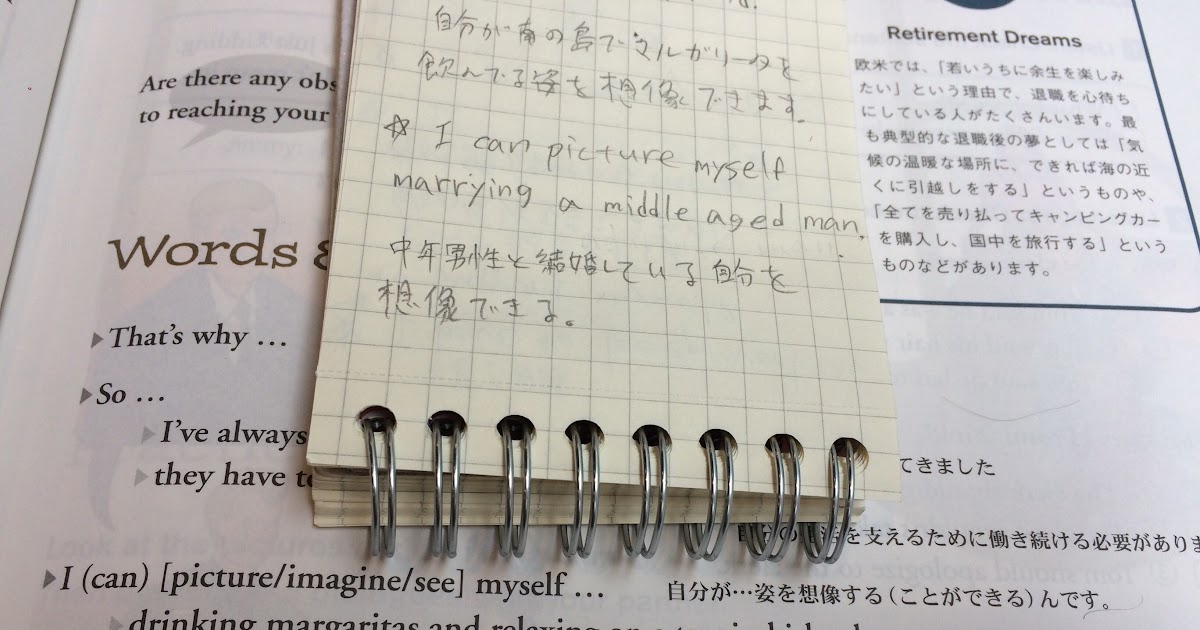 自分が南の島でマルガリータを
飲んでる姿を想像できます。
☆ I can picture myself
marrying a middle aged man.
中年男性と結婚している自分を
想像できる。
Are there any obs
to reaching your
Words &
▶That's why …
▶So …
▶I've always
▶they have to
▶I (can) [picture/imagine/see] myself …
▶drinking margaritas and relaxing on a tropical island
Retirement Dreams
欧米では、「若いうちに余生を楽しみ
たい」という理由で、退職を心待ち
にしている人がたくさんいます。最
も典型的な退職後の夢としては「気
候の温暖な場所に、できれば海の近
くに引越しをする」というものや、
「全てを売り払ってキャンピングカー
を購入し、国中を旅行する」という
ものなどがあります。
てきました
を支えるために働き続ける必要がありま
自分が…姿を想像する（ことができる）んです。